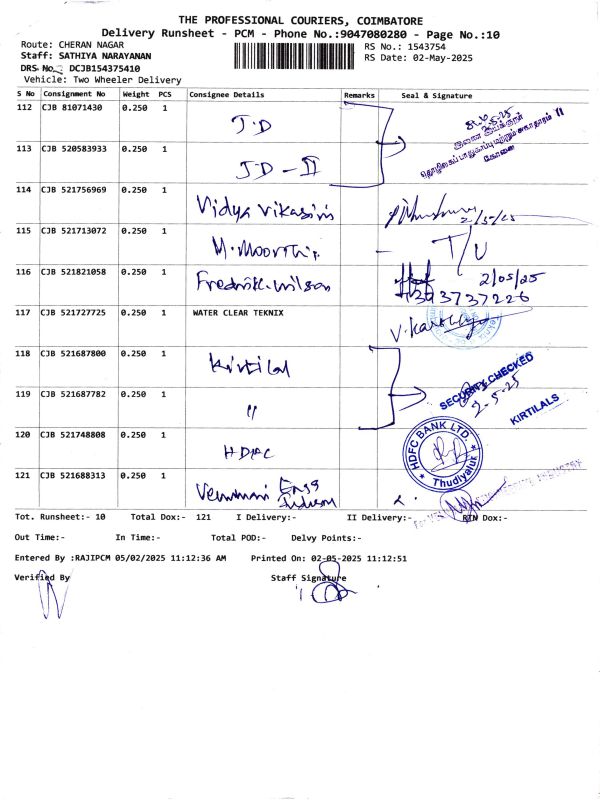 THE PROFESSIONAL COURIERS, COIMBATORE
Delivery Runsheet - PCM - Phone No.:9047080280 - Page No.:10
Route: CHERAN NAGAR
RS No.: 1543754
Staff: SATHIYA NARAYANAN
RS Date: 02-May-2025
DRS No. DCJB154375410
Vehicle: Two Wheeler Delivery
S No Consignment No Weight PCS Consignee Details Remarks Seal & Signature
112 CJB 81071430 0.250 1 J.D
113 CJB 520583933 0.250 1 JD-II
114 CJB 521756969 0.250 1 Vidya Vikasini 2/5/25
115 CJB 521713072 0.250 1 M.Moorthi T/U
116 CJB 521821058 0.250 1 Fredrik.wilson 2/05/25
117 CJB 521727725 0.250 1 WATER CLEAR TEKNIX
118 CJB 521687800 0.250 1 Kirtilal
SECURITY CHECKED
2-5-25
KIRTILALS
119 CJB 521687782 0.250 1 "
120 CJB 521748808 0.250 1 HDFC
HDFC BANK LTD.
Thudiyalur
121 CJB 521688313 0.250 1 Engg
Tot. Runsheet:- 10 Total Dox:- 121 I Delivery:- II Delivery:- RTN Dox:-
Out Time:- In Time:- Total POD:- Delvy Points:-
Entered By :RAJIPCM 05/02/2025 11:12:36 AM Printed On: 02-05-2025 11:12:51
Verified By Staff Signature